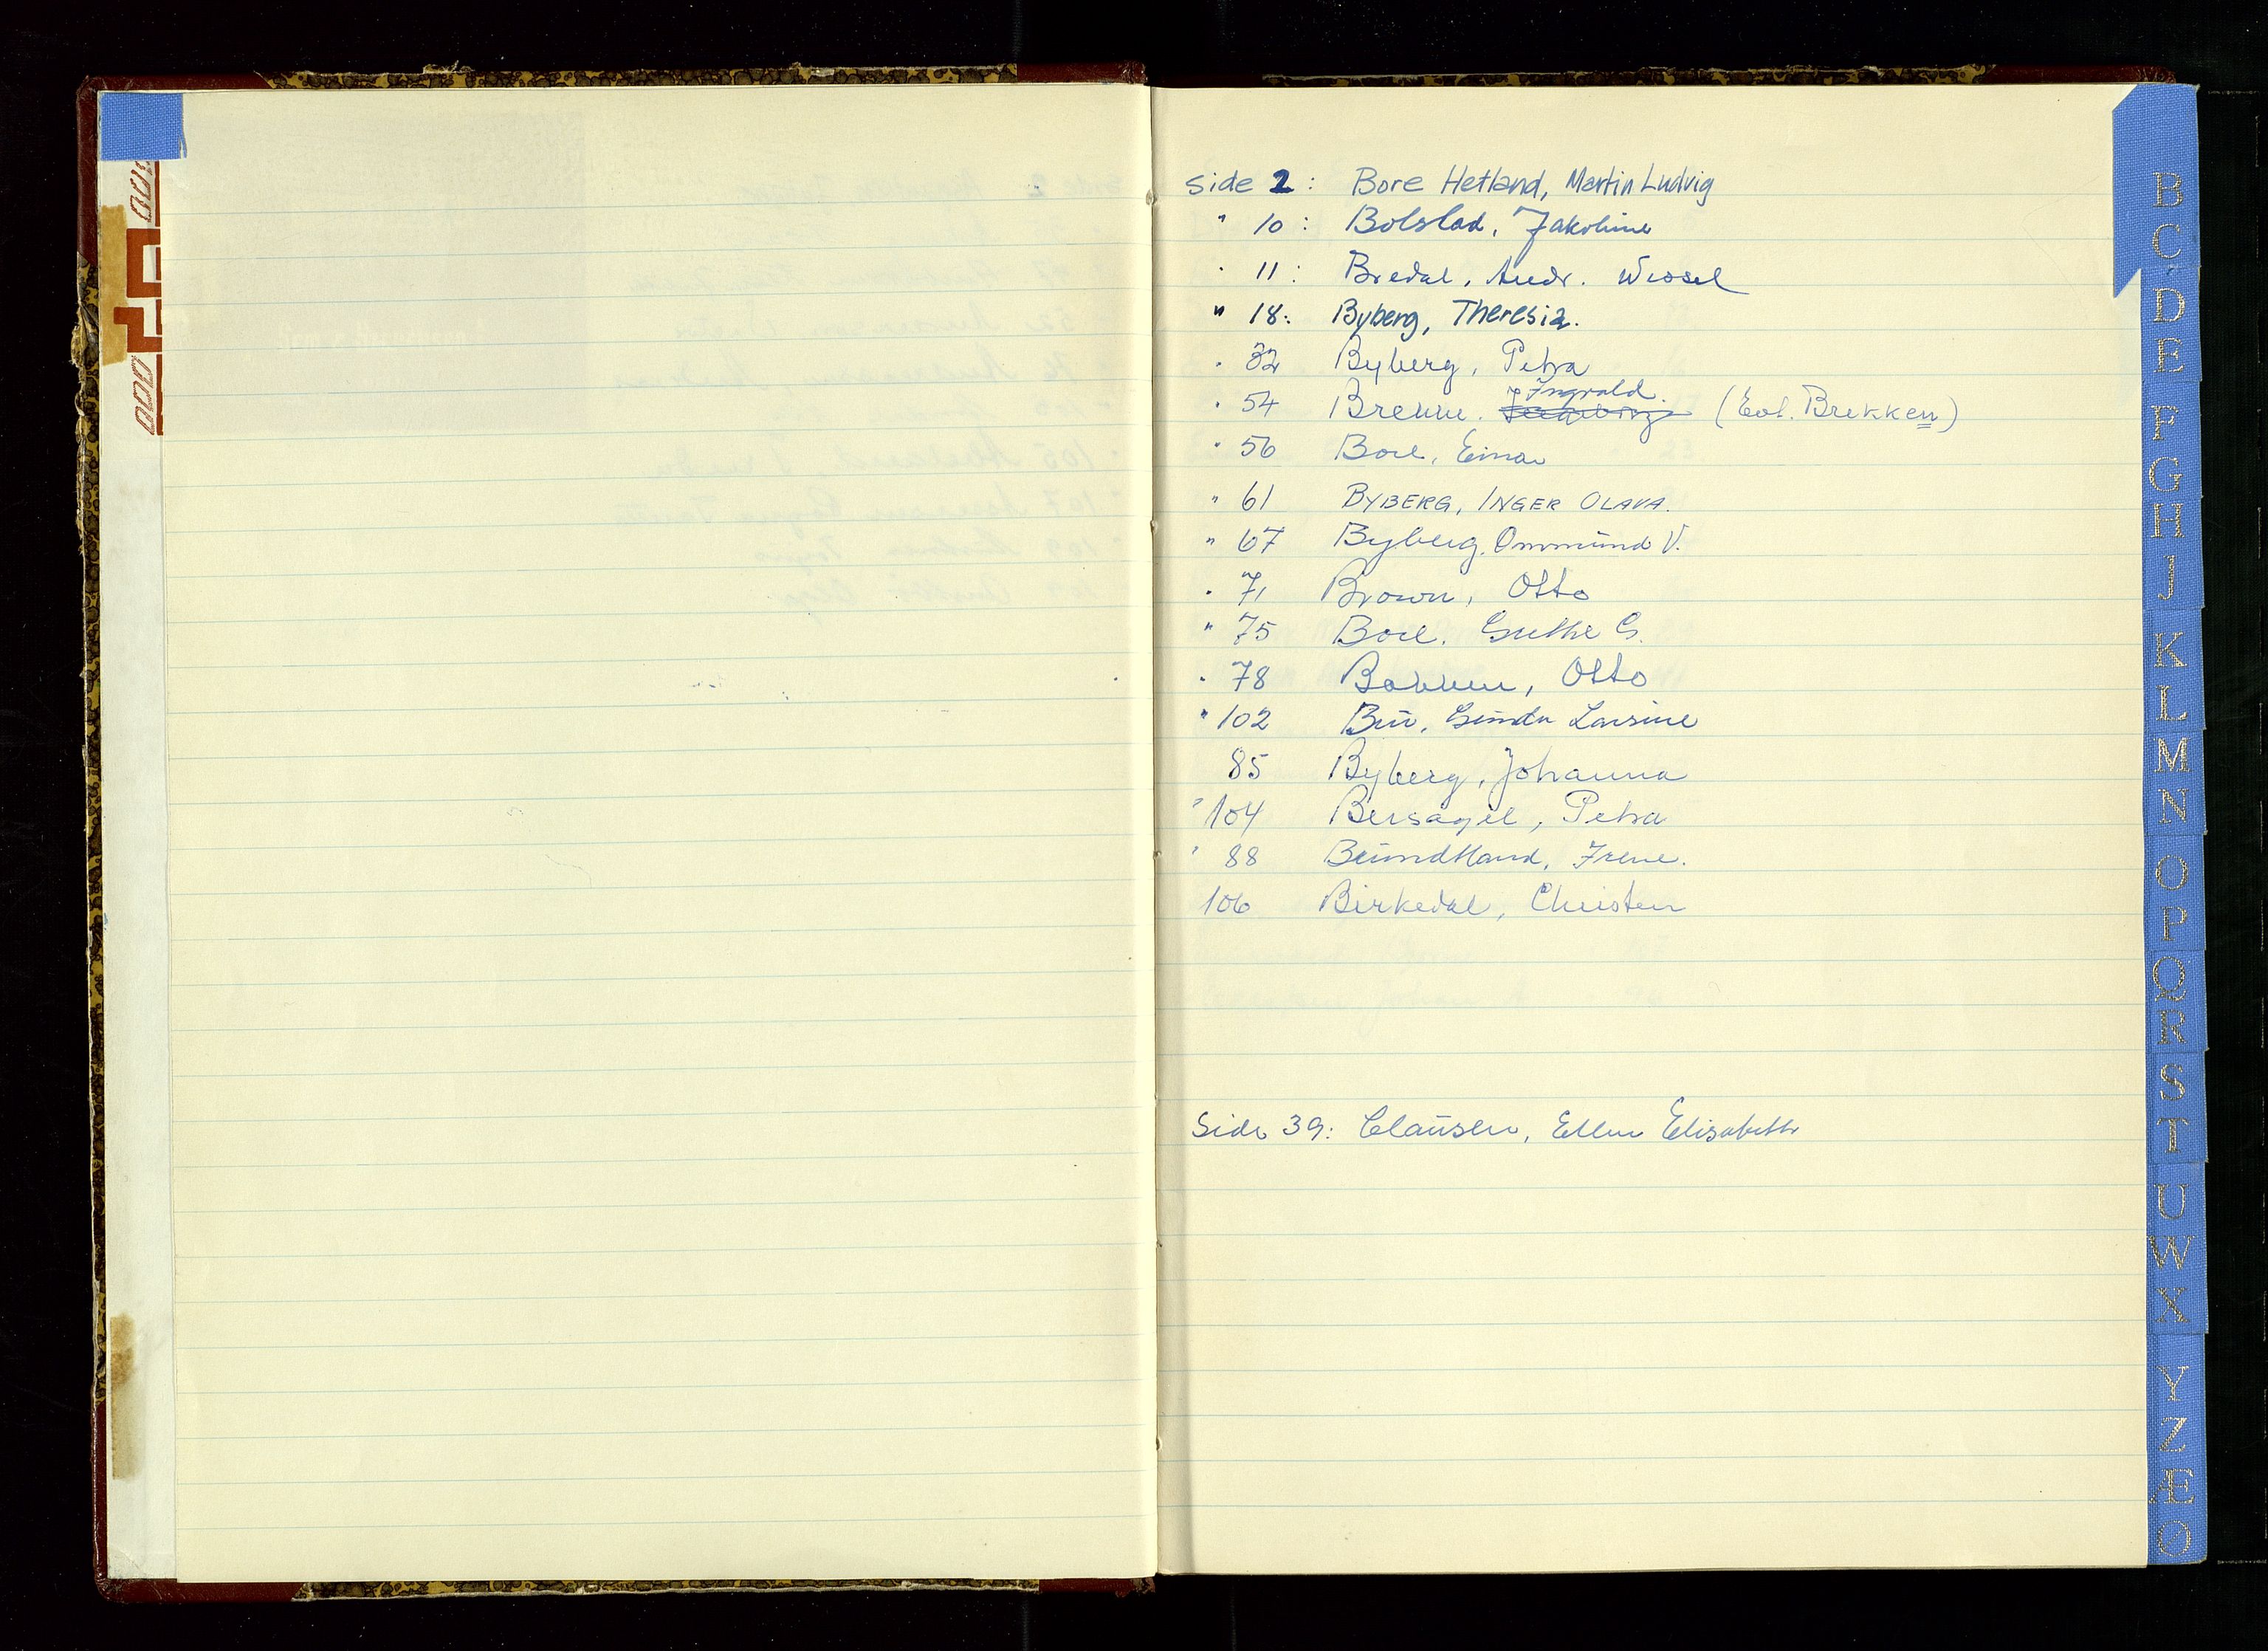 side 2: Bore Hetland, Martin Ludvig
" 10: Bolstad, Jakobine
" 11: Bredal, Andr. Wessel
" 18: Byberg, Theresia.
" 32 Byberg, Petra
" 54 Brekke. Ingvald. (Evt. Brekken)
" 56 Bore, Einar
" 61 BYBERG, INGER OLAVA.
" 67 Byberg. Ommund V.
" 71 Brown, Otto
" 75 Bore. Grethe G.
" 78 Bakken, Otto
" 102 Bru, Gunda Lovise
85 Byberg, Johanna
" 104 Bersagel, Petra
" 88 Brundtland, Irene.
106 Birkedal, Christen
Side 39: Clausen, Ellen Elisabeth
B
C
D
E
F
G
H
J
K
L
M
N
O
P
Q
R
S
T
U
W
X
Y
Z
Æ
Ø